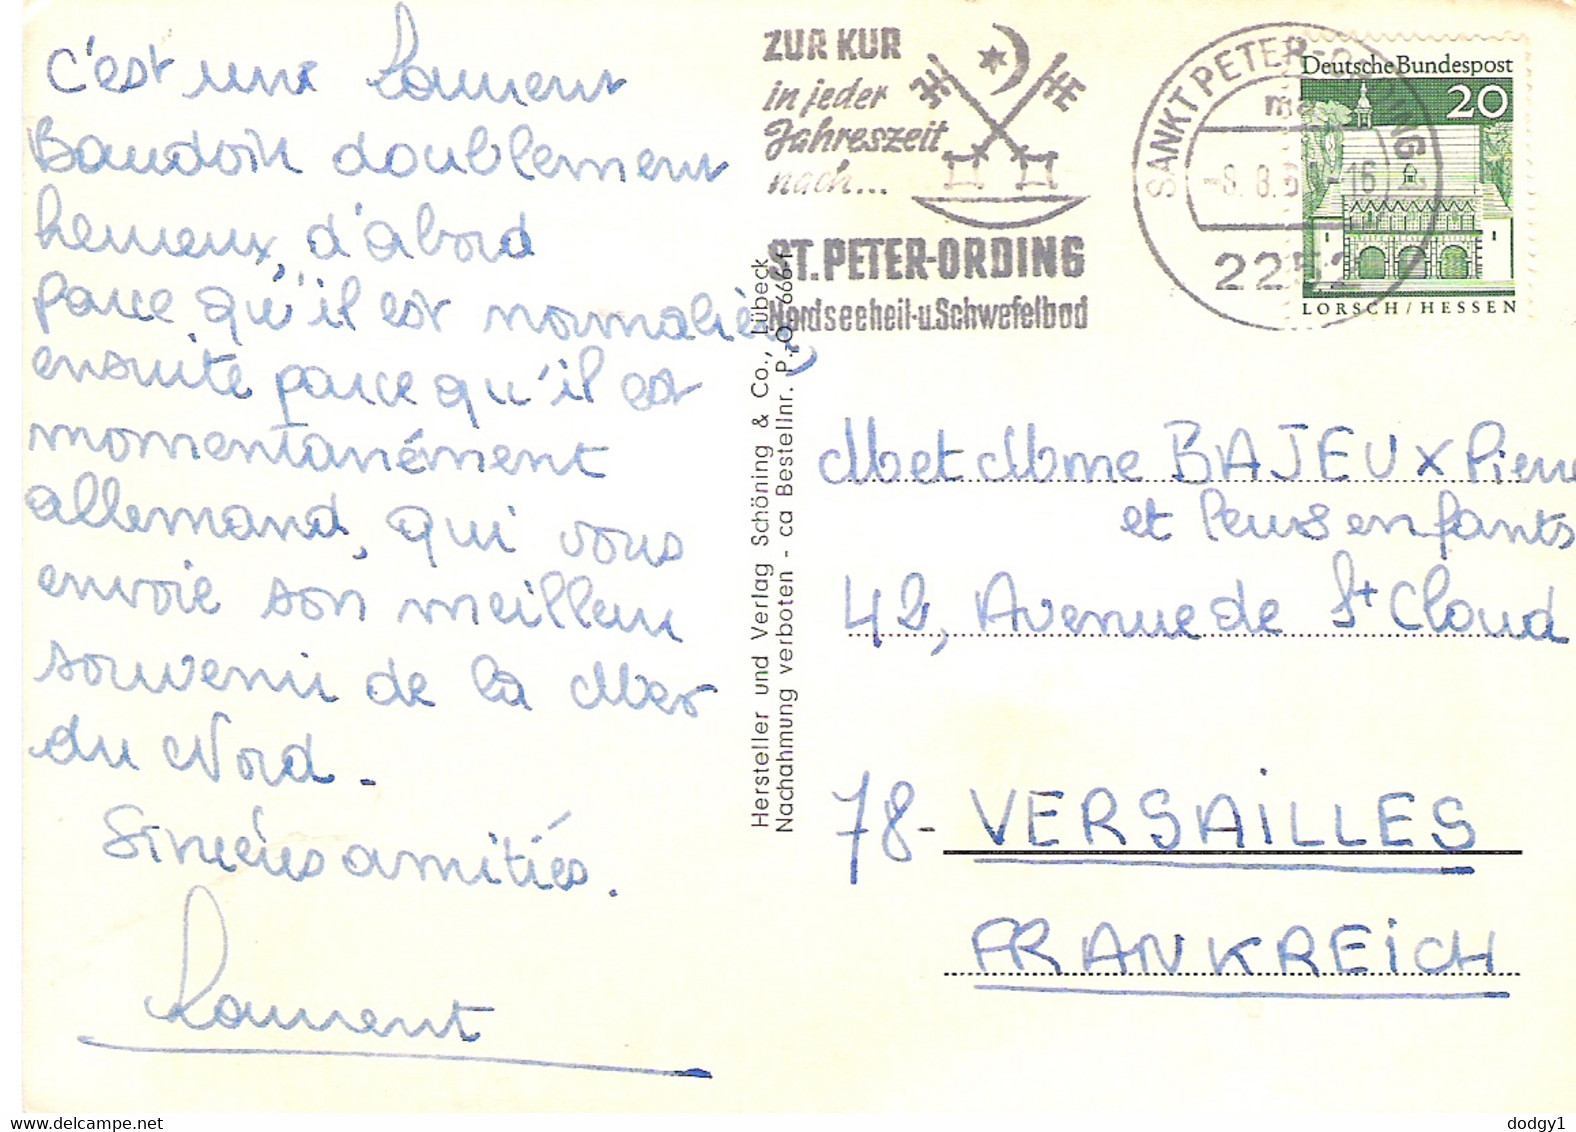 C'est un Laurent
Baudoin doublement
heureux, d'abord
parce qu'il est normalien,
ensuite parce qu'il est
momentanément
allemand, qui vous
envoie son meilleur
souvenir de la Mer
du Nord.
Sincères amitiés.
Laurent
Hersteller und Verlag Schöning & Co., Lübeck
Nachahmung verboten - ca Bestellnr. P.
ZUR KUR
in jeder
Jahreszeit
nach...
ST. PETER-ORDING
Nordseeheil-u.Schwefelbad
SANKT PETER-ORDING
-8.8.6 -16
2252
Deutsche Bundespost
20
LORSCH/HESSEN
M et Mme BAJEUX Pierre
et leurs enfants
42, Avenue de St Cloud
78- VERSAILLES
FRANKREICH
dodgy1